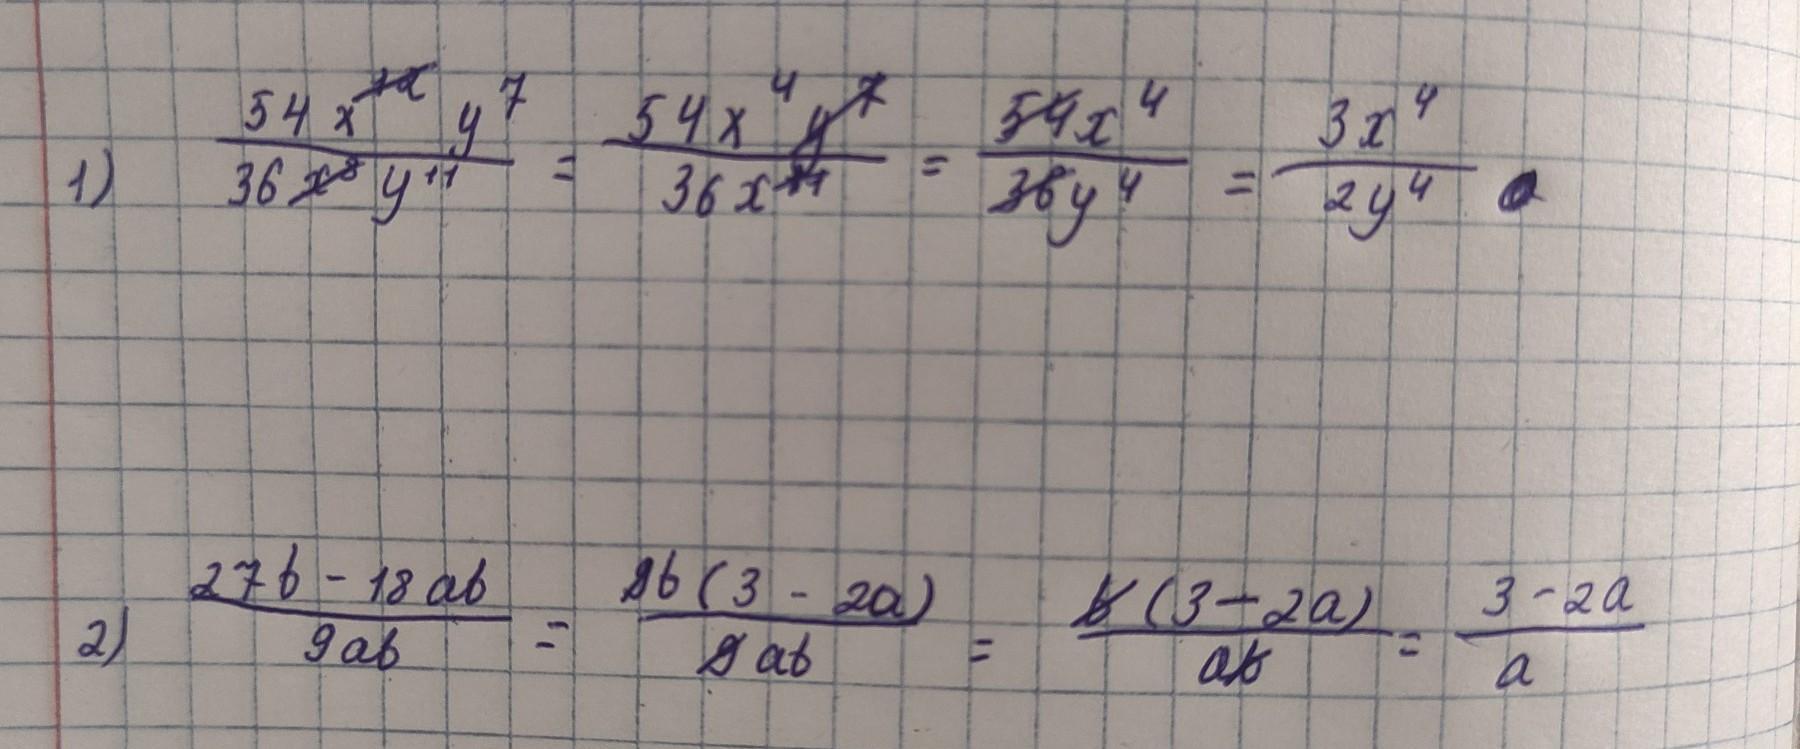 1) \frac{54x^{12}y^7}{36x^8y^{11}} = \frac{54x^4y^7}{36x^{11}} = \frac{54x^4}{36y^4} = \frac{3x^4}{2y^4}
2) \frac{27b-18ab}{9ab} = \frac{9b(3-2a)}{9ab} = \frac{b(3-2a)}{ab} = \frac{3-2a}{a}